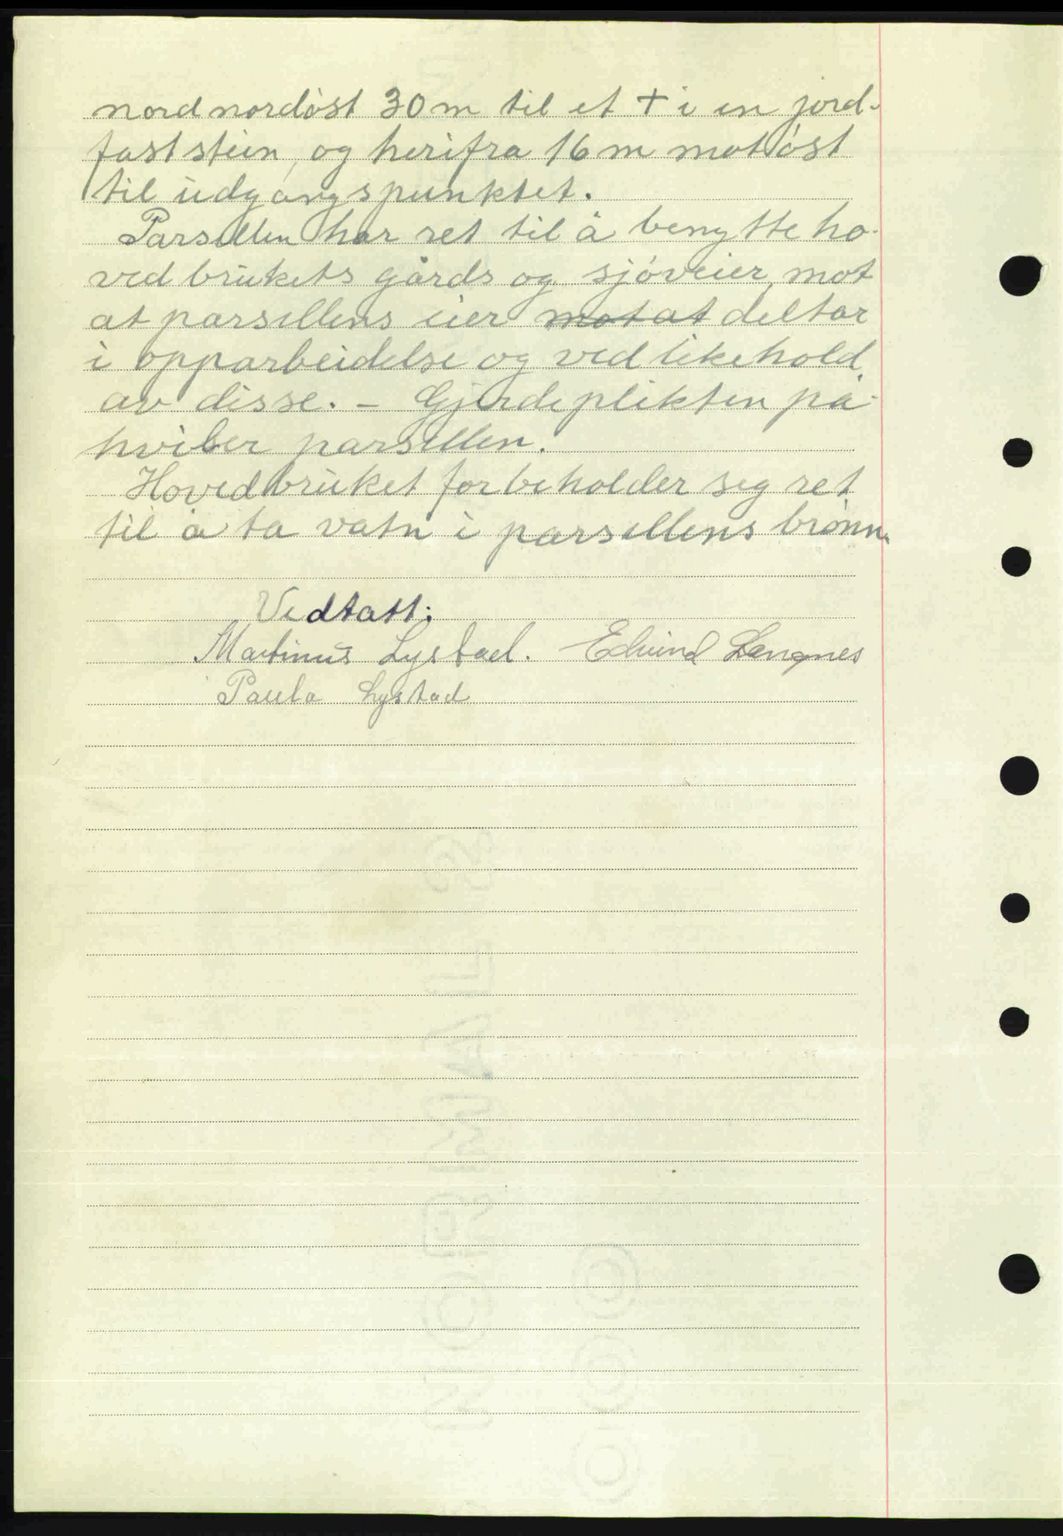 nordnordöst 30 m til et + i en jord-
fast stein, og herifra 16 m mot öst
til udgangspunktet.
Parsellen har ret til å benytte ho-
vedbrükets gårds og sjöveier, mot
at parsellens eier mot at deltar
i opparbeidelse og vedlikehold
av disse. - Gjerdeplikten på-
hviler parsellen.
Hovedbrüket forbeholder seg ret
til å ta vatn i parsellens brönn.
Vedtatt:
Martinus Lystad. Edvind Langnes
Paula Lystad
NORMAL